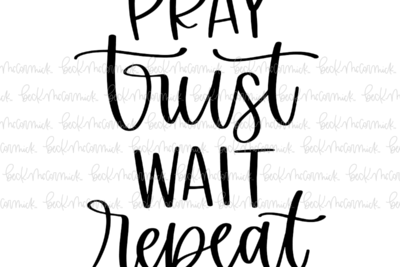 PRAY
trust
WAIT
repeat